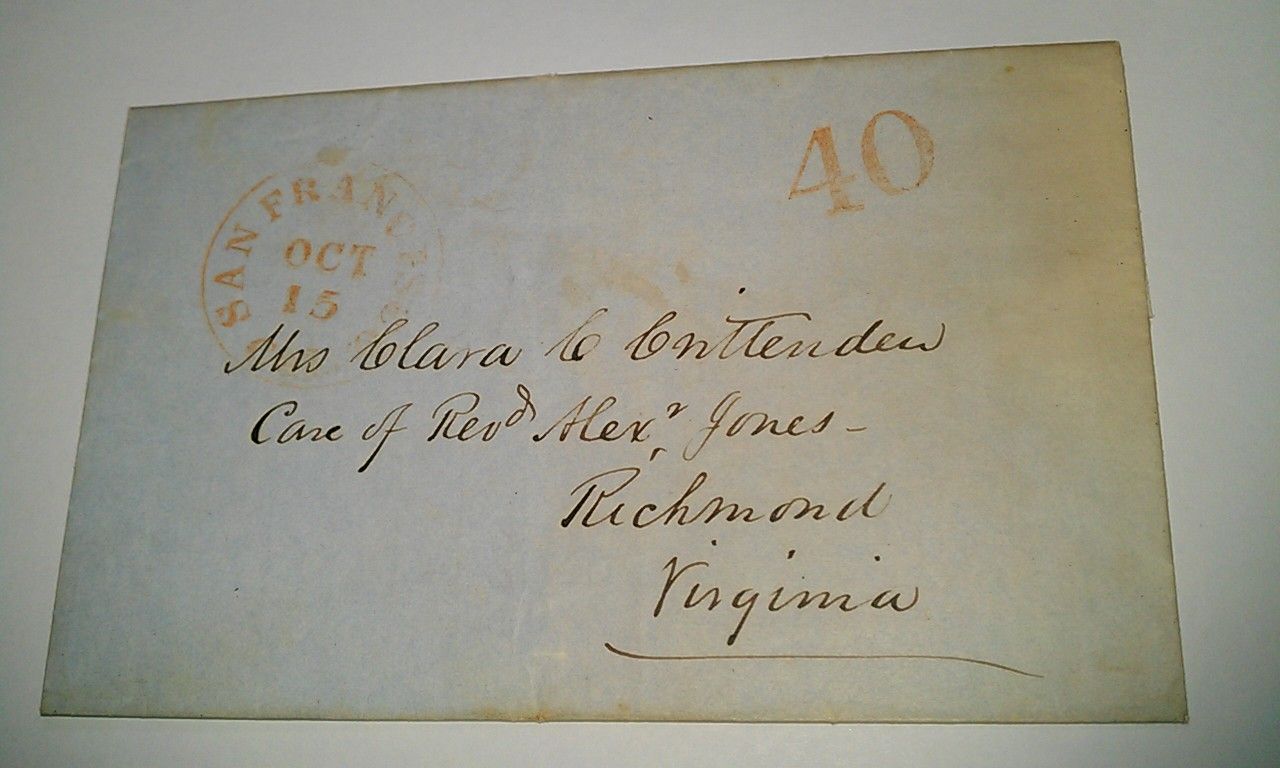 40
SAN FRANCISCO
OCT
15
Mrs Clara C Crittenden
Care of Revd Alexr Jones -
Richmond
Virginia